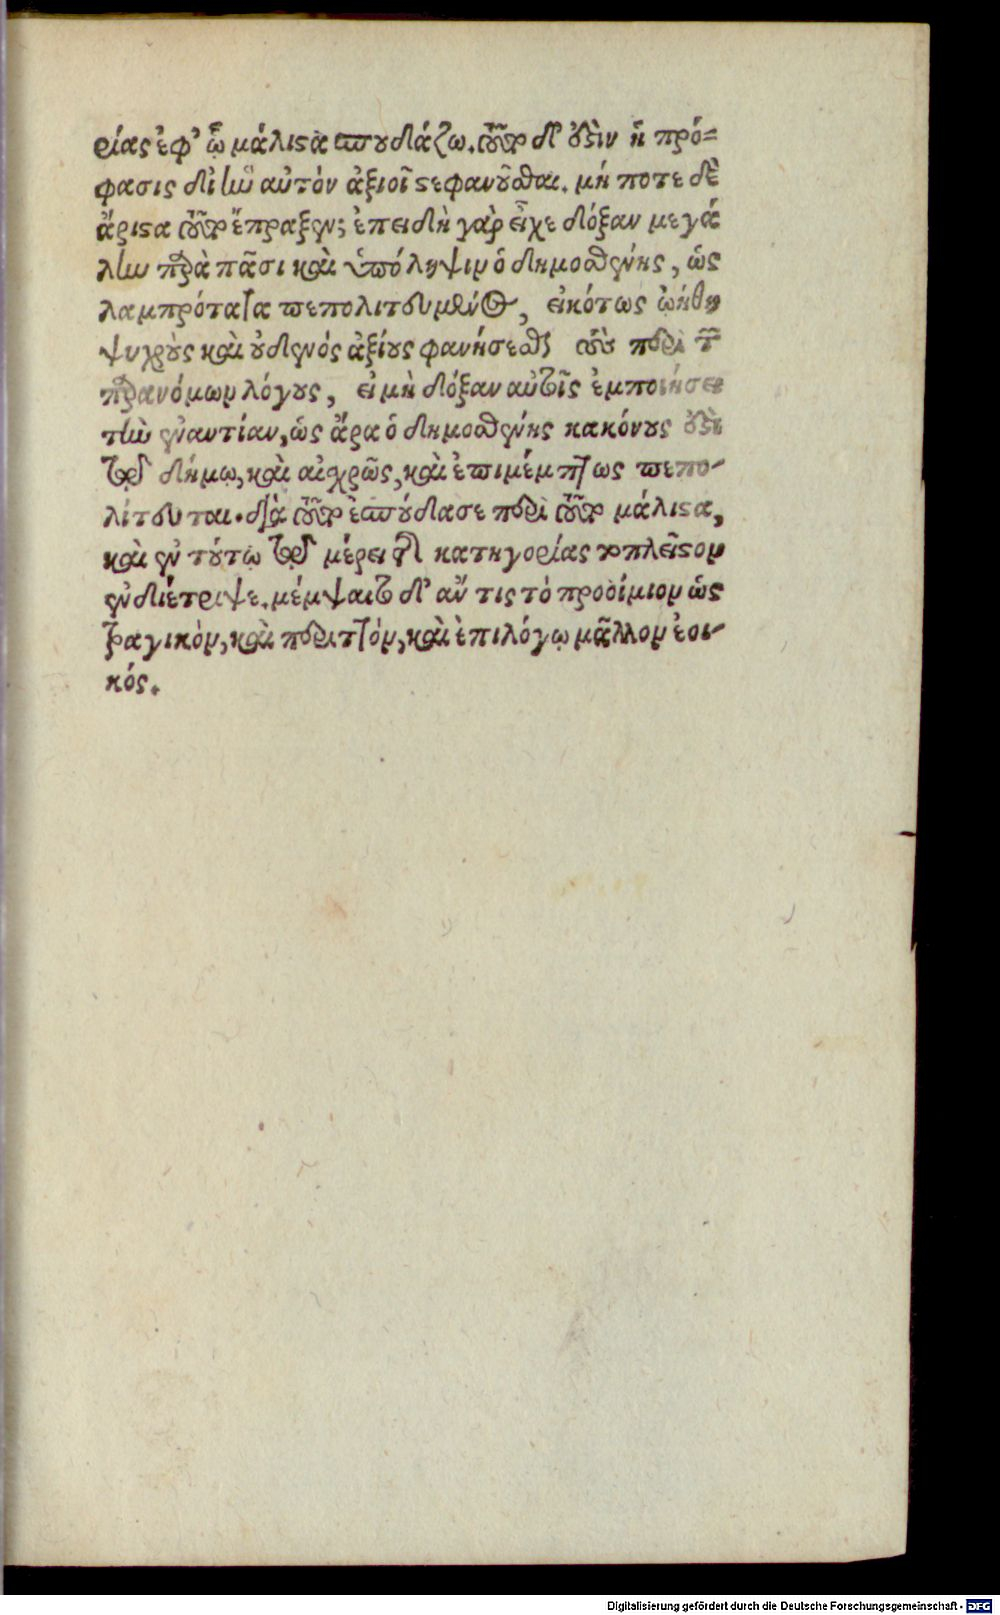 ρίας ἐφ' ᾧ μάλιστα σπουδάζω. τοῦτο δ' ἐστὶν ἡ πρό-
φασις δι' ἣν αὐτὸν ἀξιοῖ στεφανοῦσθαι. μή ποτε δὲ
ἄριστα τοῦτο ἔπραξεν; ἐπειδὴ γὰρ εἶχε δόξαν μεγά
λην παρὰ πᾶσι καὶ ὑπόληψιν ὁ δημοσθένης, ὡς
λαμπρότατα πεπολιτευμένος, εἰκότως ᾠήθη
ψυχροὺς καὶ οὐδενὸς ἀξίους φανήσεσθαι τοὺς περὶ τῶν
παρανόμων λόγους, εἰ μὴ δόξαν αὐτοῖς ἐμποιήσει
τὴν ἐναντίαν, ὡς ἄρα ὁ δημοσθένης κακόνους ἐστὶ
τῷ δήμῳ, καὶ αἰσχρῶς, καὶ ἐπιμέμπτως πεπο-
λίτευται. διὰ τοῦτο ἐσπούδασε περὶ τοῦτο μάλιστα,
καὶ ἐν τούτῳ τῷ μέρει τῆς κατηγορίας τὸ πλεῖστον
ἐνδιέτριψε. μέμψαιτο δ' ἄν τις τὸ προοίμιον ὡς
τραγικὸν, καὶ περιττὸν, καὶ ἐπιλόγῳ μᾶλλον ἐοι-
κός.
Digitalisierung gefördert durch die Deutsche Forschungsgemeinschaft - DFG